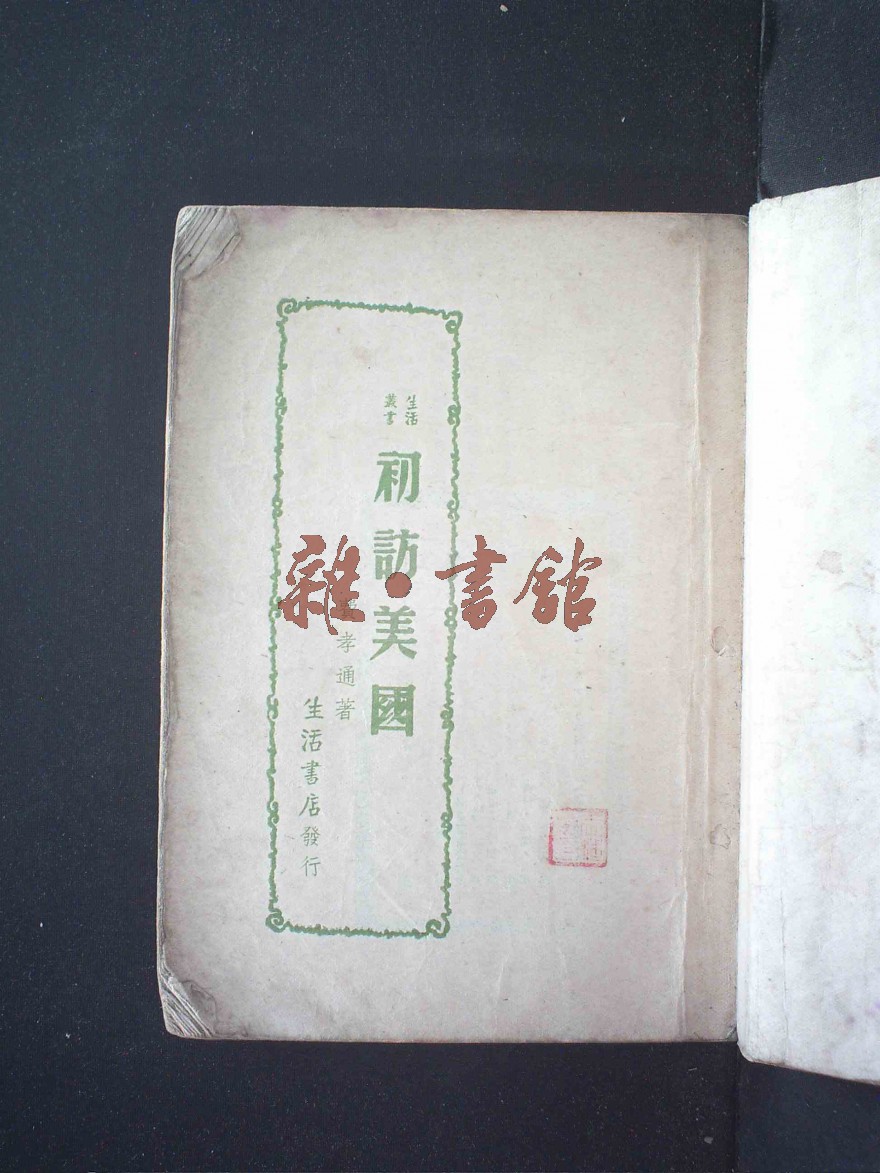 生活
叢書
初訪美國
費孝通著
生活書店發行
雜·書館